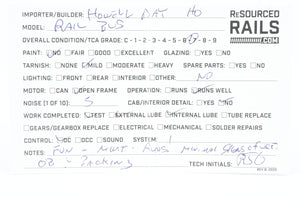 IMPORTER/BUILDER: HOWELL DAY HO
RESOURCED
MODEL: RAIL BUS
RAILS
.COM
OVERALL CONDITION/TCA GRADE: C - 1 - 2 - 3 - 4 - 5 - 6 - 7 - 8 - 9
PAINT: NO FAIR GOOD EXCELLENT GLAZING: YES NO
TARNISH: NONE MILD MODERATE HEAVY SPARE PARTS: YES NO
LIGHTING: FRONT REAR INTERIOR OTHER: NO
MOTOR: CAN OPEN FRAME OPERATION: RUNS RUNS WELL
NOISE (1 OF 10): 5 CAB/INTERIOR DETAIL: YES NO
WORK COMPLETED: TEST EXTERNAL LUBE INTERNAL LUBE TUBE REPLACE
GEARS/GEARBOX REPLACE ELECTRICAL MECHANICAL SOLDER REPAIRS
CONTROL: DC DCC SOUND SYSTEM: 1
NOTES: RUNS MINIMAL
TECH INITIALS: RSO